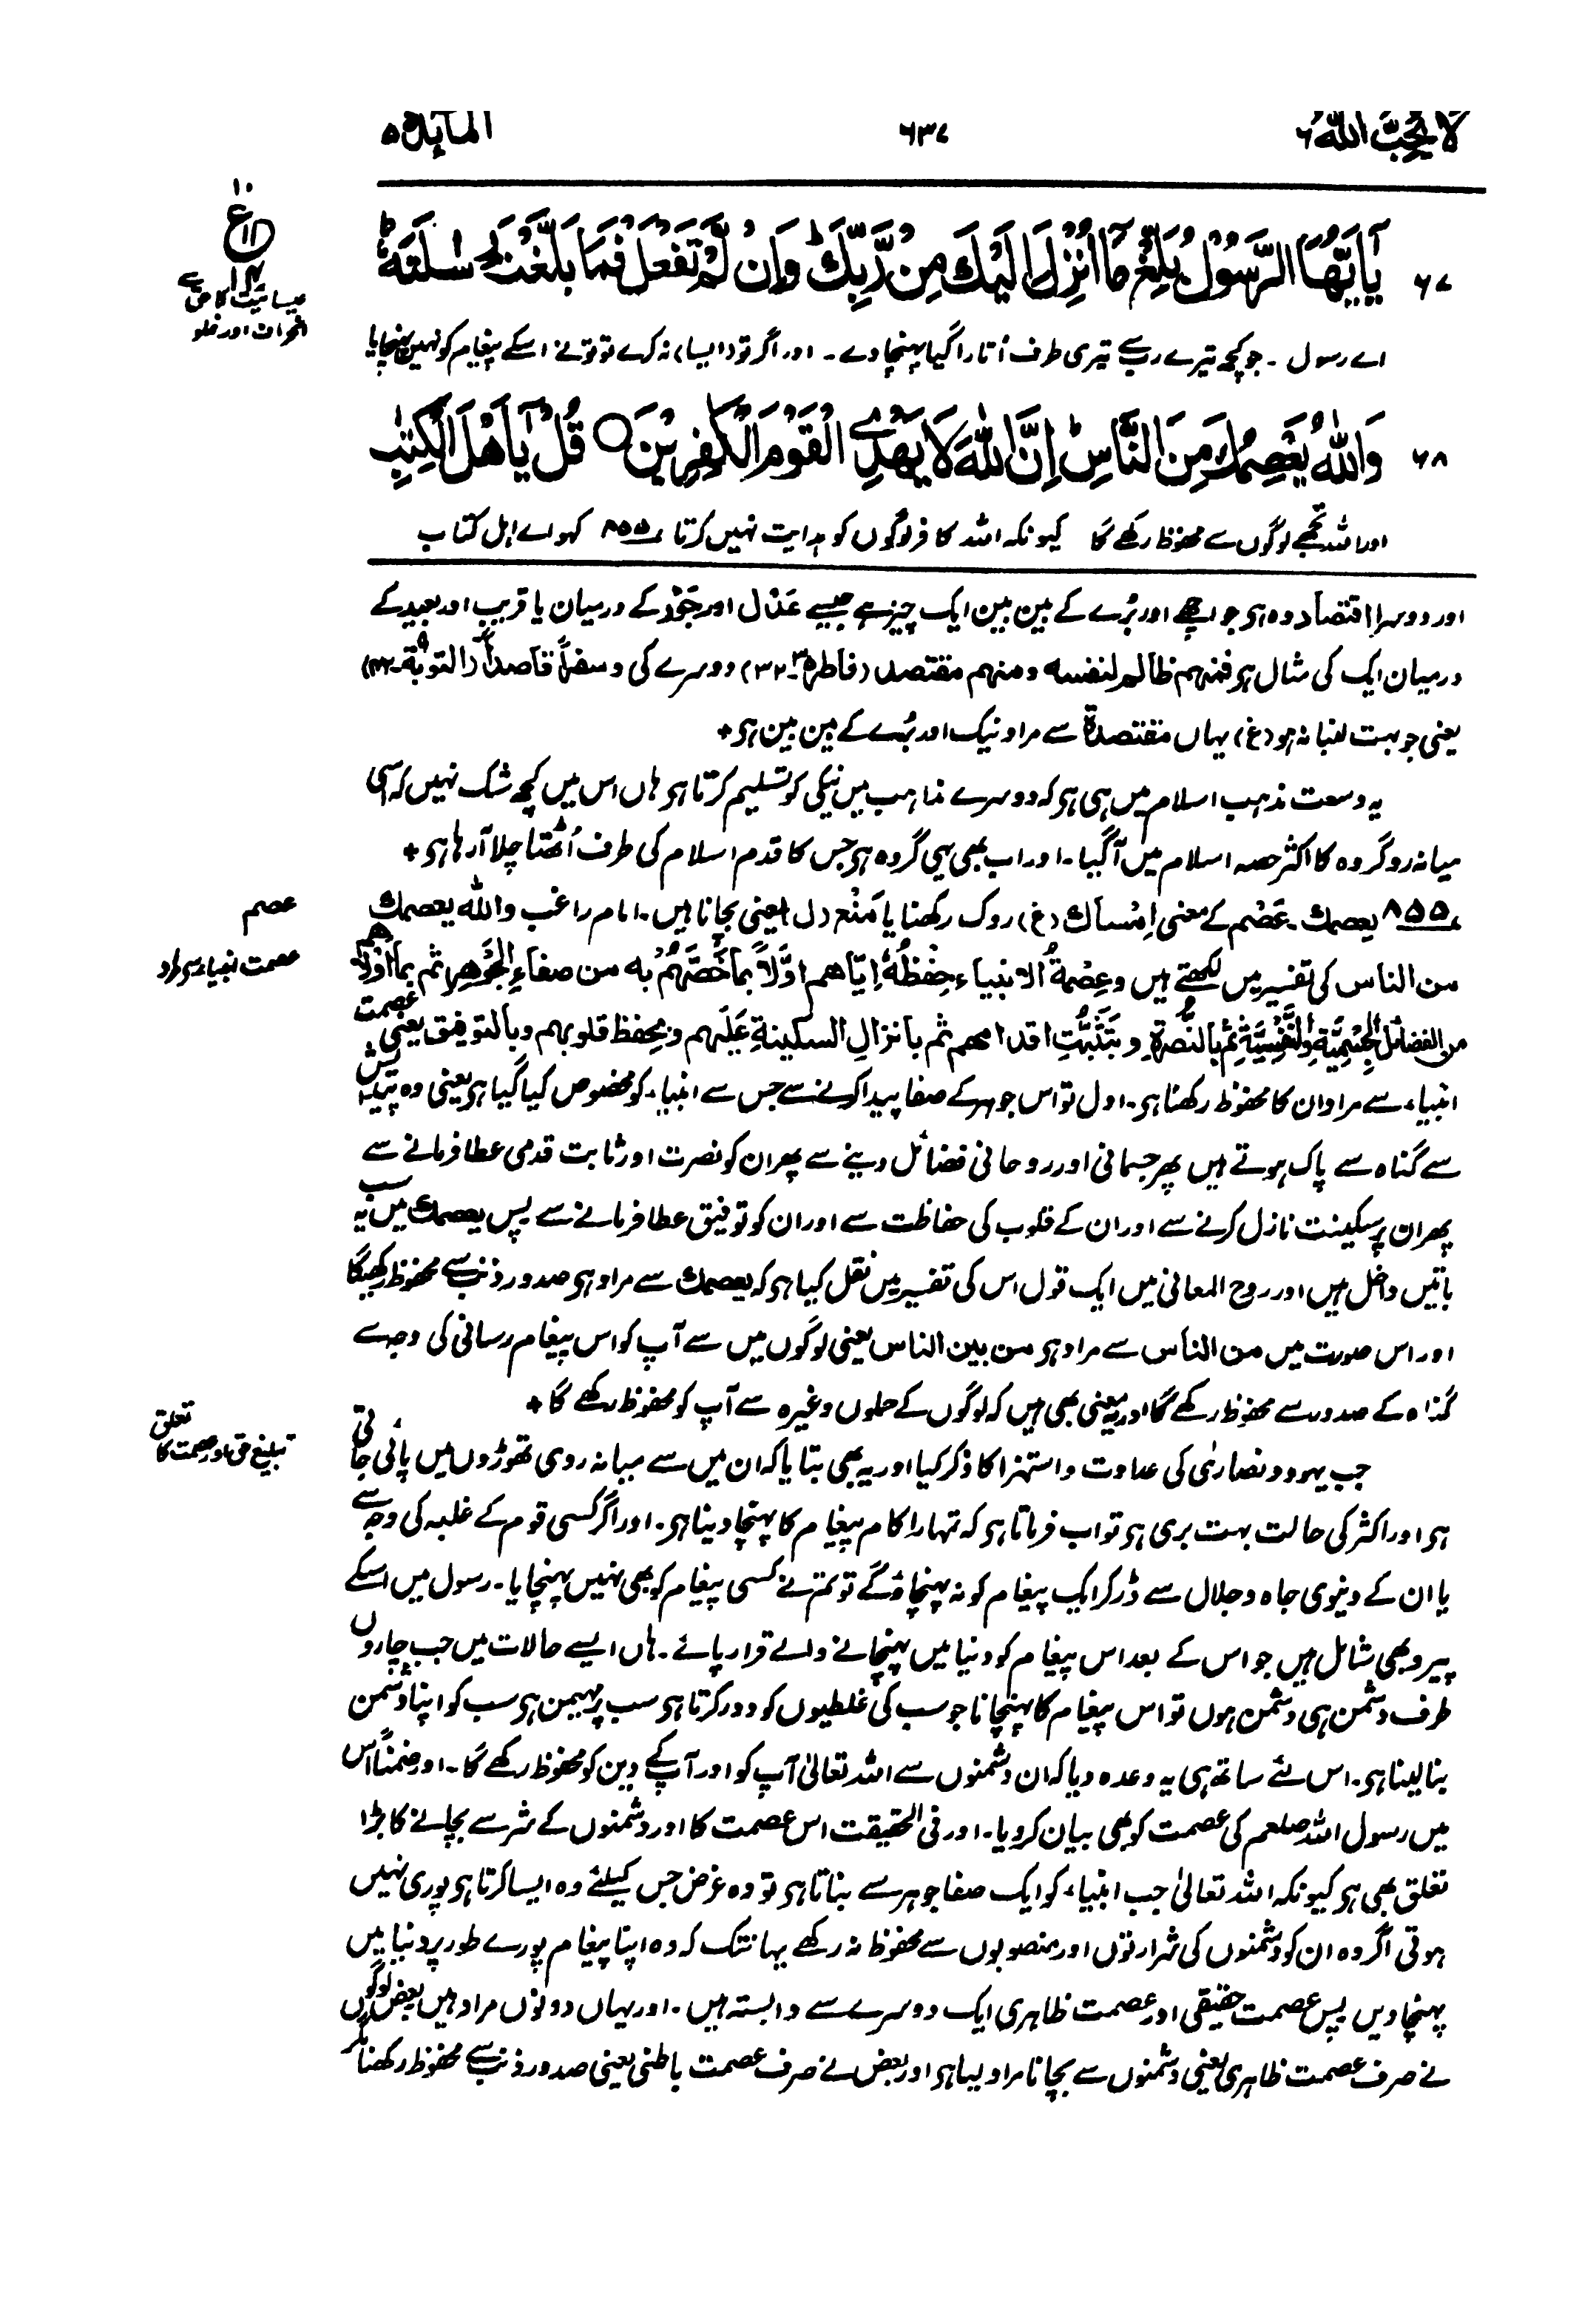 لا یحب اللہ ۶
۶۳۷
المائدۃ ۵
۱۰
ع
۱۴
عیسائیت کا حق سے
انحراف اور غلو
۶۷ يٰۤاَيُّهَا الرَّسُوْلُ بَلِّغْ مَاۤ اُنْزِلَ اِلَيْكَ مِنْ رَّبِّكَ ؕ وَاِنْ لَّمْ تَفْعَلْ فَمَا بَلَّغْتَ رِسٰلَتَهٗ ؕ
اے رسول ۔ جو کچھ تیرے رب سے تیری طرف اُتارا گیا پہنچا دے ۔ اور اگر تو (ایسا) نہ کرے تو تو نے اسکے پیغام کو نہیں پہنچایا
۶۸ وَاللّٰهُ يَعْصِمُكَ مِنَ النَّاسِ ؕ اِنَّ اللّٰهَ لَا يَهْدِي الْقَوْمَ الْكٰفِرِيْنَ ○ قُلْ يٰۤاَهْلَ الْكِتٰبِ
اور اللہ تجھے لوگوں سے محفوظ رکھے گا کیونکہ اللہ کافر لوگوں کو ہدایت نہیں کرتا ۸۵۵ کہو اے اہل کتاب
اور دوسرا اقتصاد وہ ہی جو اچھے اور بُرے کے بین بین ایک چیز ہے جیسے عَدْل اور جَوْر کے درمیان یا قریب اور بعید کے
درمیان ایک کی مثال ہی فمنہم ظالم لنفسہ ومنہم مقتصد (فاطر ۳۵۔ ۳۲) دوسرے کی وسفراً قاصداً (التوبۃ ۹۔ ۴۲)
یعنی جو بہت لنبا نہ ہو (غ) یہاں مقتصدۃ سے مراد نیک اور بُرے کے بین بین ہی+
یہ وسعت مذہب اسلام میں ہی ہی کہ دوسرے مذاہب میں نیکی کو تسلیم کرتا ہی ہاں اس میں کچھ شک نہیں کہ اسی
میانہ رو گروہ کا اکثر حصہ اسلام میں آگیا ۔ اور اب بھی یہی گروہ ہی جس کا قدم اسلام کی طرف اُٹھتا چلا آرہا ہی+
عصم
۸۵۵ یعصمك ۔ عَصْم کے معنی اِمْساك (غ) روک رکھنا یا مَنْع (ل) یعنی بچانا ہیں ۔ امام راغب واللہ یعصمك
عصمت انبیاء سے مراد
من الناس کی تفسیر میں لکھتے ہیں وعِصْمۃُ الانبیاء حِفْظُہٗ اِیّاھم اوّلاً بما خَصَّھُم بہ من صفاءِ الجَوْھر ثم بما اَوْلاھم
من الفضائل الجِسْمِیَّۃِ والنَّفْسِیَّۃِ ثم بالنُّصْرۃِ وبتَثَبُّتِ اقدامھم ثم بانزالِ السکینۃِ علَیھم وبحفظ قلوبھم وبالتوفیق یعنی عصمت
انبیاء سے مراد ان کا محفوظ رکھنا ہی ۔ اول تو اس جوہر کے صفا پیدا کرنے سے جس سے انبیاء کو مخصوص کیا گیا ہی یعنی وہ پیدائش
سے گناہ سے پاک ہوتے ہیں پھر جسمانی اور روحانی فضائل دینے سے پھر ان کو نصرت اور ثابت قدمی عطا فرمانے سے
پھر ان پر سکینت نازل کرنے سے اور ان کے قلوب کی حفاظت سے اور ان کو توفیق عطا فرمانے سے پس یعصمك میں یہ سب
باتیں داخل ہیں اور روح المعانی میں ایک قول اس کی تفسیر میں نقل کیا ہی کہ یعصمك سے مراد ہی صدور ذنب سے محفوظ رکھیگا
اور اس صورت میں من الناس سے مراد ہی من بین الناس یعنی لوگوں میں سے آپ کو اس پیغام رسانی کی وجہ سے
گناہ کے صدور سے محفوظ رکھے گا اور یہ معنی بھی ہیں کہ لوگوں کے حملوں وغیرہ سے آپ کو محفوظ رکھے گا+
تبلیغ حق اور عصمت کا تعلق
جب یہود و نصاریٰ کی عداوت و استہزا کا ذکر کیا اور یہ بھی بتایا کہ ان میں سے میانہ روی تھوڑوں میں پائی جاتی
ہی اور اکثر کی حالت بہت بری ہی تو اب فرماتا ہی کہ تمہارا کام پیغام کا پہنچا دینا ہی ۔ اور اگر کسی قوم کے غلبہ کی وجہ سے
یا ان کے دنیوی جاہ و جلال سے ڈر کر ایک پیغام کو نہ پہنچاؤ گے تو تم نے کسی پیغام کو بھی نہیں پہنچایا ۔ رسول میں اسکے
پیرو بھی شامل ہیں جو اس کے بعد اس پیغام کو دنیا میں پہنچانے والے قرار پائے ۔ ہاں ایسے حالات میں جب چاروں
طرف دشمن ہی دشمن ہوں تو اس پیغام کا پہنچانا جو سب کی غلطیوں کو دور کرتا ہی سب پر مہیمن ہی سب کو اپنا دشمن
بنا لینا ہی ۔ اس لئے ساتھ ہی یہ وعدہ دیا کہ ان دشمنوں سے اللہ تعالیٰ آپ کو اور آپ کے دین کو محفوظ رکھے گا ۔ اور ضمناً اس
میں رسول اللہ صلعم کی عصمت کو بھی بیان کردیا ۔ اور فی الحقیقت اس عصمت کا اور دشمنوں کے شر سے بچانے کا بڑا
تعلق بھی ہی کیونکہ اللہ تعالیٰ جب انبیاء کو ایک صفا جوہر سے بناتا ہی تو وہ غرض جس کیلئے وہ ایسا کرتا ہی پوری نہیں
ہوتی اگر وہ ان کو دشمنوں کی شرارتوں اور منصوبوں سے محفوظ نہ رکھے یہانتک کہ وہ اپنا پیغام پورے طور پر دنیا میں
پہنچا دیں پس عصمت حقیقی اور عصمت ظاہری ایک دوسرے سے وابستہ ہیں ۔ اور یہاں دونوں مراد ہیں بعض لوگوں
نے صرف عصمت ظاہری یعنی دشمنوں سے بچانا مراد لیا ہی اور بعض نے صرف عصمت باطنی یعنی صدور ذنب سے محفوظ رکھنا مگر